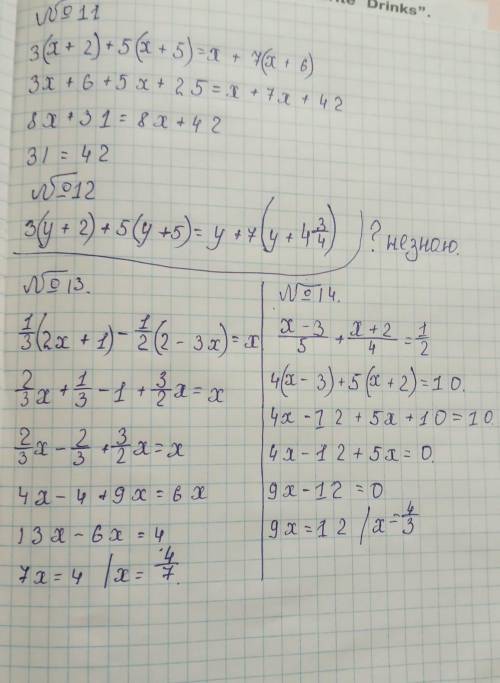 Drinks".
№11
3(x + 2) + 5(x + 5) = x + 7(x + 6)
3x + 6 + 5x + 25 = x + 7x + 42
8x + 31 = 8x + 42
31 = 42
№12
3(y + 2) + 5(y + 5) = y + 7(y + 4 3/4) ? незнаю.
№13.
1/3(2x + 1) - 1/2(2 - 3x) = x
2/3x + 1/3 - 1 + 3/2x = x
2/3x - 2/3 + 3/2x = x
4x - 4 + 9x = 6x
13x - 6x = 4
7x = 4 / x = 4/7.
№14.
x - 3/5 + x + 2/4 = 1/2
4(x - 3) + 5(x + 2) = 10.
4x - 12 + 5x + 10 = 10
4x - 12 + 5x = 0.
9x - 12 = 0
9x = 12 / x = 4/3